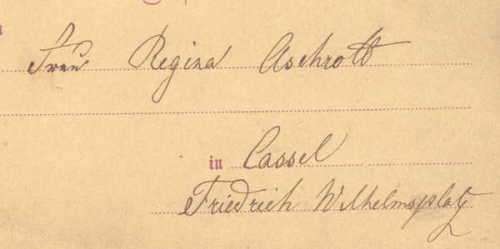 Frau Regina Aschrott
in Cassel
Friedrich Wilhelmsplatz